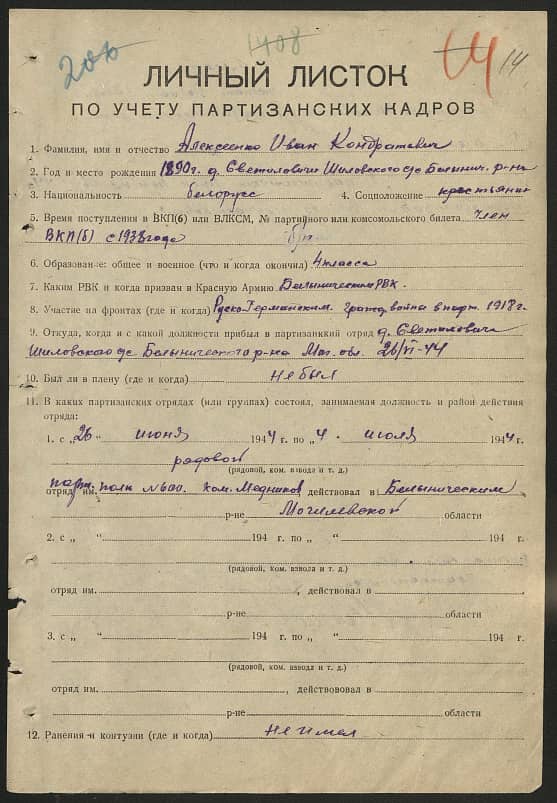 206 1408 14 14
ЛИЧНЫЙ ЛИСТОК
ПО УЧЕТУ ПАРТИЗАНСКИХ КАДРОВ
1. Фамилия, имя и отчество Алексеенко Иван Кондратович
2. Год и место рождения 1890г. д. Светиловичи Шиловского с/с Белынич. р-на
3. Национальность белорус 4. Соцположение крестьянин
5. Время поступления в ВКП(б) или ВЛКСМ, № партийного или комсомольского билета член
ВКП(б) с 1938 года б/п
6. Образование: общее и военное (что и когда окончил) 4 класса
7. Каким РВК и когда призван в Красную Армию Белыническим РВК.
8. Участие на фронтах (где и когда) Руско-Германским. Гражд война 1918 г.
9. Откуда, когда и с какой должности прибыл в партизанский отряд д. Светиловичи
Шиловского с/с Белыничского р-на Мог. обл. 26/VI-44
10. Был ли в плену (где и когда) не был
11. В каких партизанских отрядах (или группах) состоял, занимаемая должность и район действия
отряда:
1. с „26“ июня 1944 г. по „4“ июля 1944 г.
рядовой
(рядовой, ком. взвода и т. д.)
отряд им. парт. полк №600. ком. Медников действовал в Белыническим
р-не Могилевской области
2. с „ “ 194 г. по „ “ 194 г.
(рядовой, ком. взвода и т. д.)
отряд им. , действовал в
р-не области
3. с „ “ 194 г. по „ “ 194 г.
(рядовой, ком. взвода и т. д.)
отряд им. , действововал в
р-не области
12. Ранения и контузии (где и когда) не имел